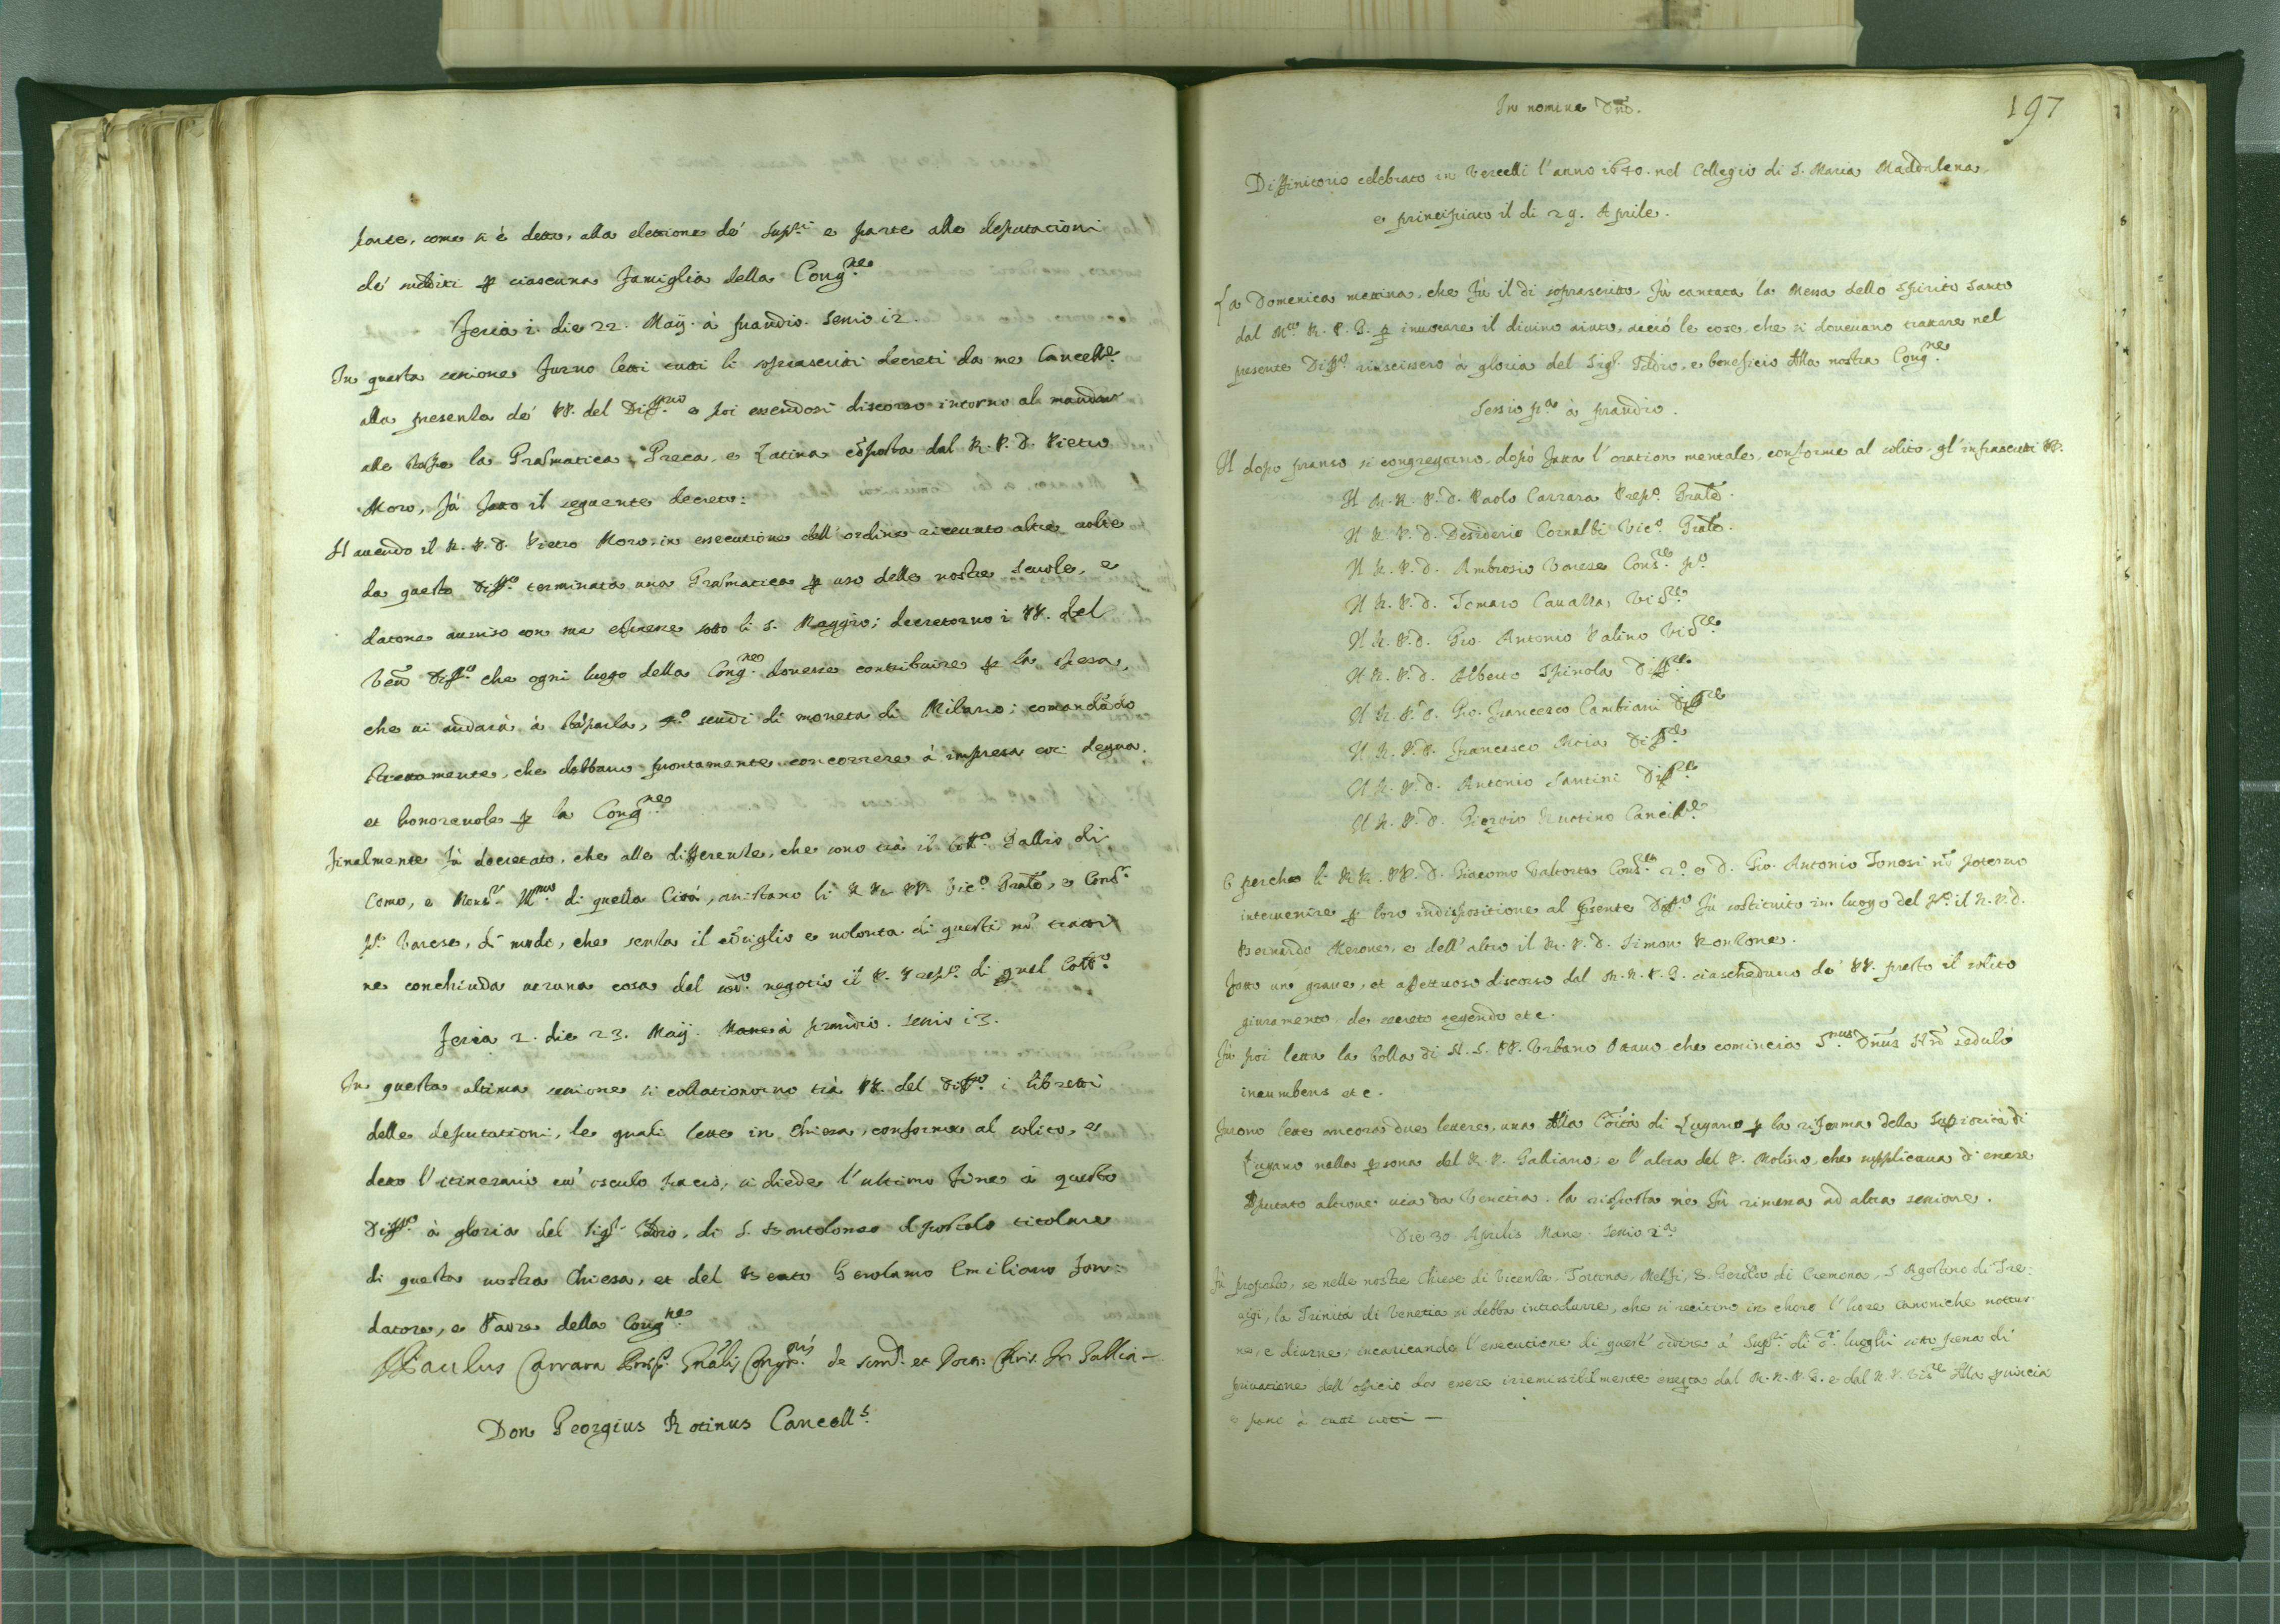 parte, come si è detto, alla elettione de' Supri. e parte alle deputationi
de' sudditi p ciascuna famiglia della Congne.
Feria i. die 22. Maij. à prandio. Sessio i2.
In questa sessione furno letti tutti li soprascritti decreti da me Cancellre.
alla presenza de' PP. del Diffrio. e poi essendosi discorso intorno al mandar
alle stampe la Gramatica Greca, e Latina cõposta dal R. P. D. Pietro
Moro, fù fatto il seguente decreto:
Havendo il R. P. D. Pietro Moro, in essecutione dell' ordine riceuuto altre uolte
da questo Diffro. terminata una Gramatica p uso delle nostre Scuole, e
datone auuiso con sue essere sotto li 5. Maggio; decretorno i PP. del
Ven. Diffro. che ogni luogo della Congne. douesse contribuire p la spesa,
che ui andarà à stãparla, 4o. scudi di moneta di Milano; comandãdo
strettamente, che debbano prontamente concorrere à impresa così degna,
et honorevole p la Congne.
Finalmente fù decretato, che alle differenze, che sono trà il Collo. Gallio di
Como, e Monsr. Illmo. di quella Città, assistano li R RR. PP. Vico. Gnale, e Consre.
po. Varese, di modo, che senza il cõsiglio e uolontà di questi nõ tratti
ne conchiuda ueruna cosa del sudo. negotio il P. Prepo. di quel Collo.
Feria 2. die 23. Maij. Mane à prandio. Sessio i3.
In questa ultima sessione si collationorno trà PP. del Diffro. i libretti
delle deputationi, le quali lette in Chiesa, conforme al solito, e
detto l'itinerario cu' osculo pacis, si diede l'ultimo fine à questo
Diffro. à gloria del Sigr. Iddio, di S. Bartolomeo Apostolo titolare
di questa nostra Chiesa, et del Beato Gerolamo Emiliano fon:
datore, e Padre della Congne.
Paulus Carrara Prep. Gnalis Congris. de Som. et Doctr. Chris. In Gallia —
Don Georgius Rotinus Cancells.
197
In nomine Dñi.
Diffinitorio celebrato in Vercelli l'anno 1640. nel Collegio di S. Maria Maddalena,
e principiato il di 29. Aprile.
La Domenica mattina, che fù il di soprascritto, fù cantata la Messa dello Spirito Santo
dal Mto. R. P. G. p inuocare il diuino aiuto, acciò le cose, che si doueuano trattare nel
presente Diffro. riuscissero à gloria del Sigr. Iddio, e beneficio della nostra Congne.
Sessio pa. à prandio.
Il dopo pranso si congregorno, dopò fatta l'oration mentale, conforme al solito, gl'infrascritti PP.
Il M. R. P. D. Paolo Carrara Prepo. Gnale.
Il R. P. D. Desiderio Cornalbi Vico. Gnale.
Il R. P. D. Ambrosio Varese Consre. po.
Il R. P. D. Tomaso Cauazza, Visre.
Il R. P. D. Gio. Antonio Palino Visre.
Il R. P. D. Alberto Spinola Diffre.
Il R. P. D. Gio. Francesco Cambiani Diffre.
Il R. P. D. Francesco Moia Diffre.
Il R. P. D. Antonio Santini Diffre.
Il R. P. D. Giorgio Ruotino Cancellre.
E perche li R R. PP. D. Giacomo Valtorta Consre. 2o. e D. Gio. Antonio Tonosi nõ poterno
interuenire p loro indispositione al presente Diffro. fù sostituito in luogo del po. il R. P. D.
Bernardo Merone, e dell' altro il R. P. D. Simon Ronzone.
Fatto un graue, et affettuoso discorso dal M. R. P. G. ciascheduno de' PP. prestò il solito
giuramento de secreto tegendo etc.
Fù poi letta la bolla di N. S. PP. Vrbano Ottauo che comincia Smus. Dñus Nr. sedulò
incumbens etc.
Furono lette ancora due lettere, una della Cõità di Lugano p la riforma della Supriorità di
Lugano nella psona del R. P. Galliano; e l'altra del P. Molino, che supplicaua d'essere
deputato altroue uia da Venetia. la risposta nè fù rimessa ad altra sessione.
Die 30. Aprilis Mane. Sessio 2a.
Fù proposto, se nelle nostre Chiese di Vicenza, Tortona, Melfi, S. Gerolo. di Cremona, S. Agostino di Tre:
uigi, la Trinità di Venetia si debba introdurre, che si recitino in choro l'hore canoniche nottur:
ne, e diurne; incaricando l'essecutione di quest' ordine à' Supri. di di. luoghi sotto pena di
priuatione dell' officio da essere irremissibilmente essegta dal M. R. P. G. e dal R. P. Visre. della prouincia
e parue à tutti —